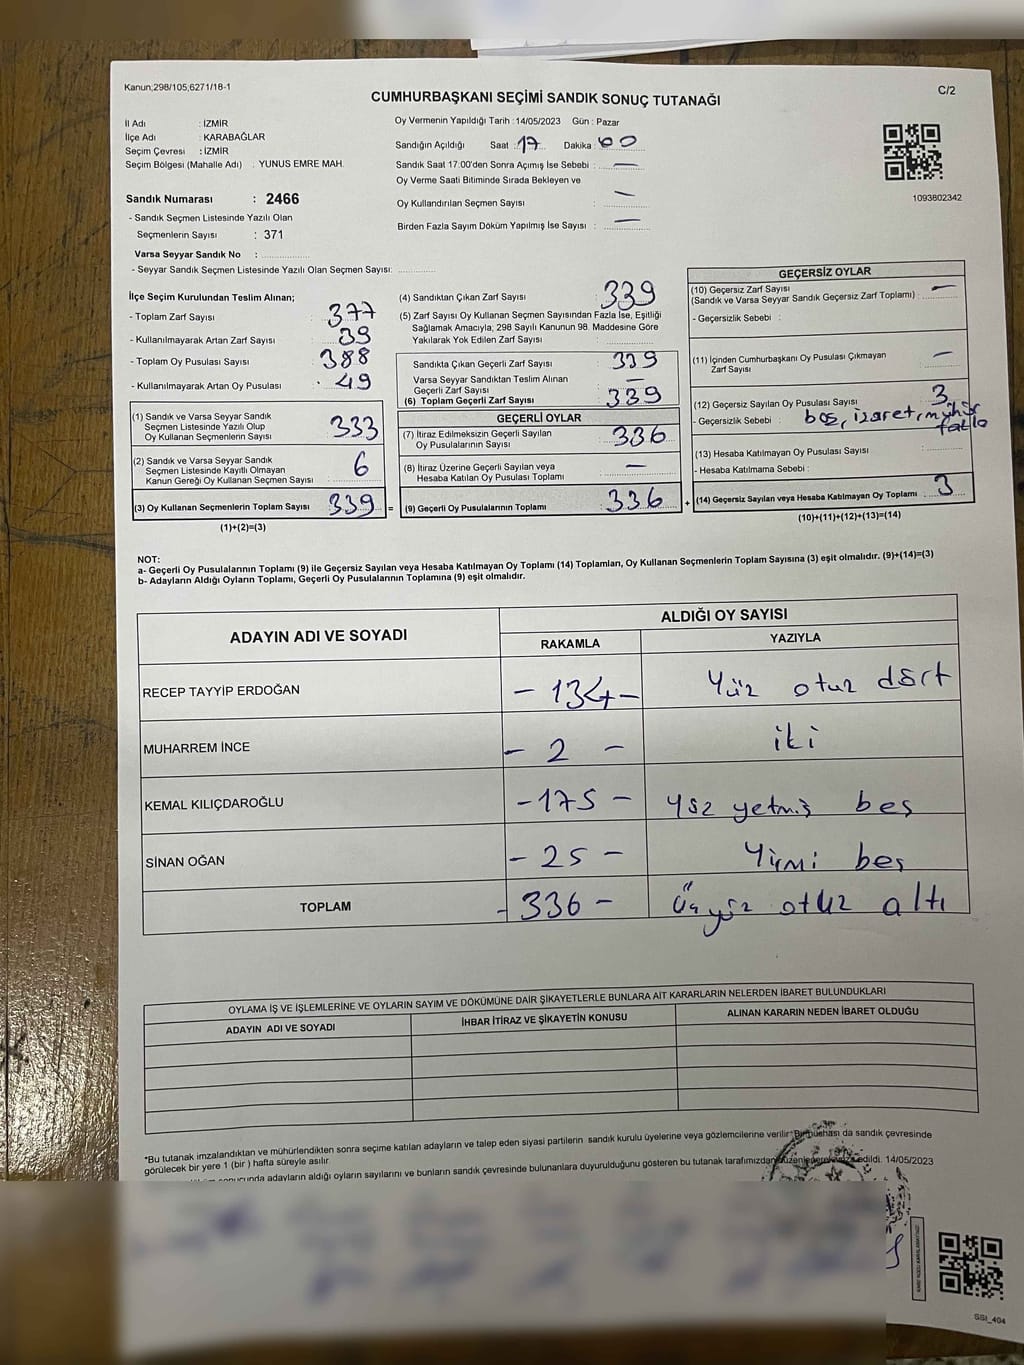 Kanun;298/105;6271/18-1
C/2
CUMHURBAŞKANI SEÇİMİ SANDIK SONUÇ TUTANAĞI
İl Adı : İZMİR
İlçe Adı : KARABAĞLAR
Seçim Çevresi : İZMİR
Seçim Bölgesi (Mahalle Adı) : YUNUS EMRE MAH.
Oy Vermenin Yapıldığı Tarih :14/05/2023 Gün : Pazar
Sandığın Açıldığı Saat : 17 Dakika : 00
Sandık Saat 17:00'den Sonra Açımış İse Sebebi : —
Oy Verme Saati Bitiminde Sırada Bekleyen ve
Oy Kullandırılan Seçmen Sayısı : —
Birden Fazla Sayım Döküm Yapılmış İse Sayısı : —
1093802342
Sandık Numarası : 2466
- Sandık Seçmen Listesinde Yazılı Olan
Seçmenlerin Sayısı : 371
Varsa Seyyar Sandık No :
- Seyyar Sandık Seçmen Listesinde Yazılı Olan Seçmen Sayısı:
İlçe Seçim Kurulundan Teslim Alınan;
- Toplam Zarf Sayısı : 377
- Kullanılmayarak Artan Zarf Sayısı : 39
- Toplam Oy Pusulası Sayısı : 388
- Kullanılmayarak Artan Oy Pusulası : 49
(1) Sandık ve Varsa Seyyar Sandık
Seçmen Listesinde Yazılı Olup
Oy Kullanan Seçmenlerin Sayısı : 333
(2) Sandık ve Varsa Seyyar Sandık
Seçmen Listesinde Kayıtlı Olmayan
Kanun Gereği Oy Kullanan Seçmen Sayısı : 6
(3) Oy Kullanan Seçmenlerin Toplam Sayısı : 339 =
(1)+(2)=(3)
(4) Sandıktan Çıkan Zarf Sayısı : 339
(5) Zarf Sayısı Oy Kullanan Seçmen Sayısından Fazla İse, Eşitliği
Sağlamak Amacıyla; 298 Sayılı Kanunun 98. Maddesine Göre
Yakılarak Yok Edilen Zarf Sayısı :
Sandıkta Çıkan Geçerli Zarf Sayısı : 339
Varsa Seyyar Sandıktan Teslim Alınan
Geçerli Zarf Sayısı : —
(6) Toplam Geçerli Zarf Sayısı : 339
GEÇERLİ OYLAR
(7) İtiraz Edilmeksizin Geçerli Sayılan
Oy Pusulalarının Sayısı : 336
(8) İtiraz Üzerine Geçerli Sayılan veya
Hesaba Katılan Oy Pusulası Toplamı : —
(9) Geçerli Oy Pusulalarının Toplamı : 336 +
GEÇERSİZ OYLAR
(10) Geçersiz Zarf Sayısı
(Sandık ve Varsa Seyyar Sandık Geçersiz Zarf Toplamı) : —
- Geçersizlik Sebebi :
(11) İçinden Cumhurbaşkanı Oy Pusulası Çıkmayan
Zarf Sayısı : —
(12) Geçersiz Sayılan Oy Pusulası Sayısı : 3
- Geçersizlik Sebebi : boş, işaret, mühür
fazla
(13) Hesaba Katılmayan Oy Pusulası Sayısı :
- Hesaba Katılmama Sebebi :
(14) Geçersiz Sayılan veya Hesaba Katılmayan Oy Toplamı : 3
(10)+(11)+(12)+(13)=(14)
NOT:
a- Geçerli Oy Pusulalarının Toplamı (9) ile Geçersiz Sayılan veya Hesaba Katılmayan Oy Toplamı (14) Toplamları, Oy Kullanan Seçmenlerin Toplam Sayısına (3) eşit olmalıdır. (9)+(14)=(3)
b- Adayların Aldığı Oyların Toplamı, Geçerli Oy Pusulalarının Toplamına (9) eşit olmalıdır.
ADAYIN ADI VE SOYADI
ALDIĞI OY SAYISI
RAKAMLA YAZIYLA
RECEP TAYYİP ERDOĞAN - 134 - Yüz otuz dört
MUHARREM İNCE - 2 - iki
KEMAL KILIÇDAROĞLU - 175 - yüz yetmiş beş
SİNAN OĞAN - 25 - Yirmi beş
TOPLAM - 336 - Üçyüz otuz altı
OYLAMA İŞ VE İŞLEMLERİNE VE OYLARIN SAYIM VE DÖKÜMÜNE DAİR ŞİKAYETLERLE BUNLARA AİT KARARLARIN NELERDEN İBARET BULUNDUKLARI
ADAYIN ADI VE SOYADI İHBAR İTİRAZ VE ŞİKAYETİN KONUSU ALINAN KARARIN NEDEN İBARET OLDUĞU
*Bu tutanak imzalandıktan ve mühürlendikten sonra seçime katılan adayların ve talep eden siyasi partilerin sandık kurulu üyelerine veya gözlemcilerine verilir. Bir nüshası da sandık çevresinde
görülecek bir yere 1 (bir ) hafta süreyle asılır.
sonucunda adayların aldığı oyların sayılarını ve bunların sandık çevresinde bulunanlara duyurulduğunu gösteren bu tutanak tarafımızdan edildi. 14/05/2023
SSI_404